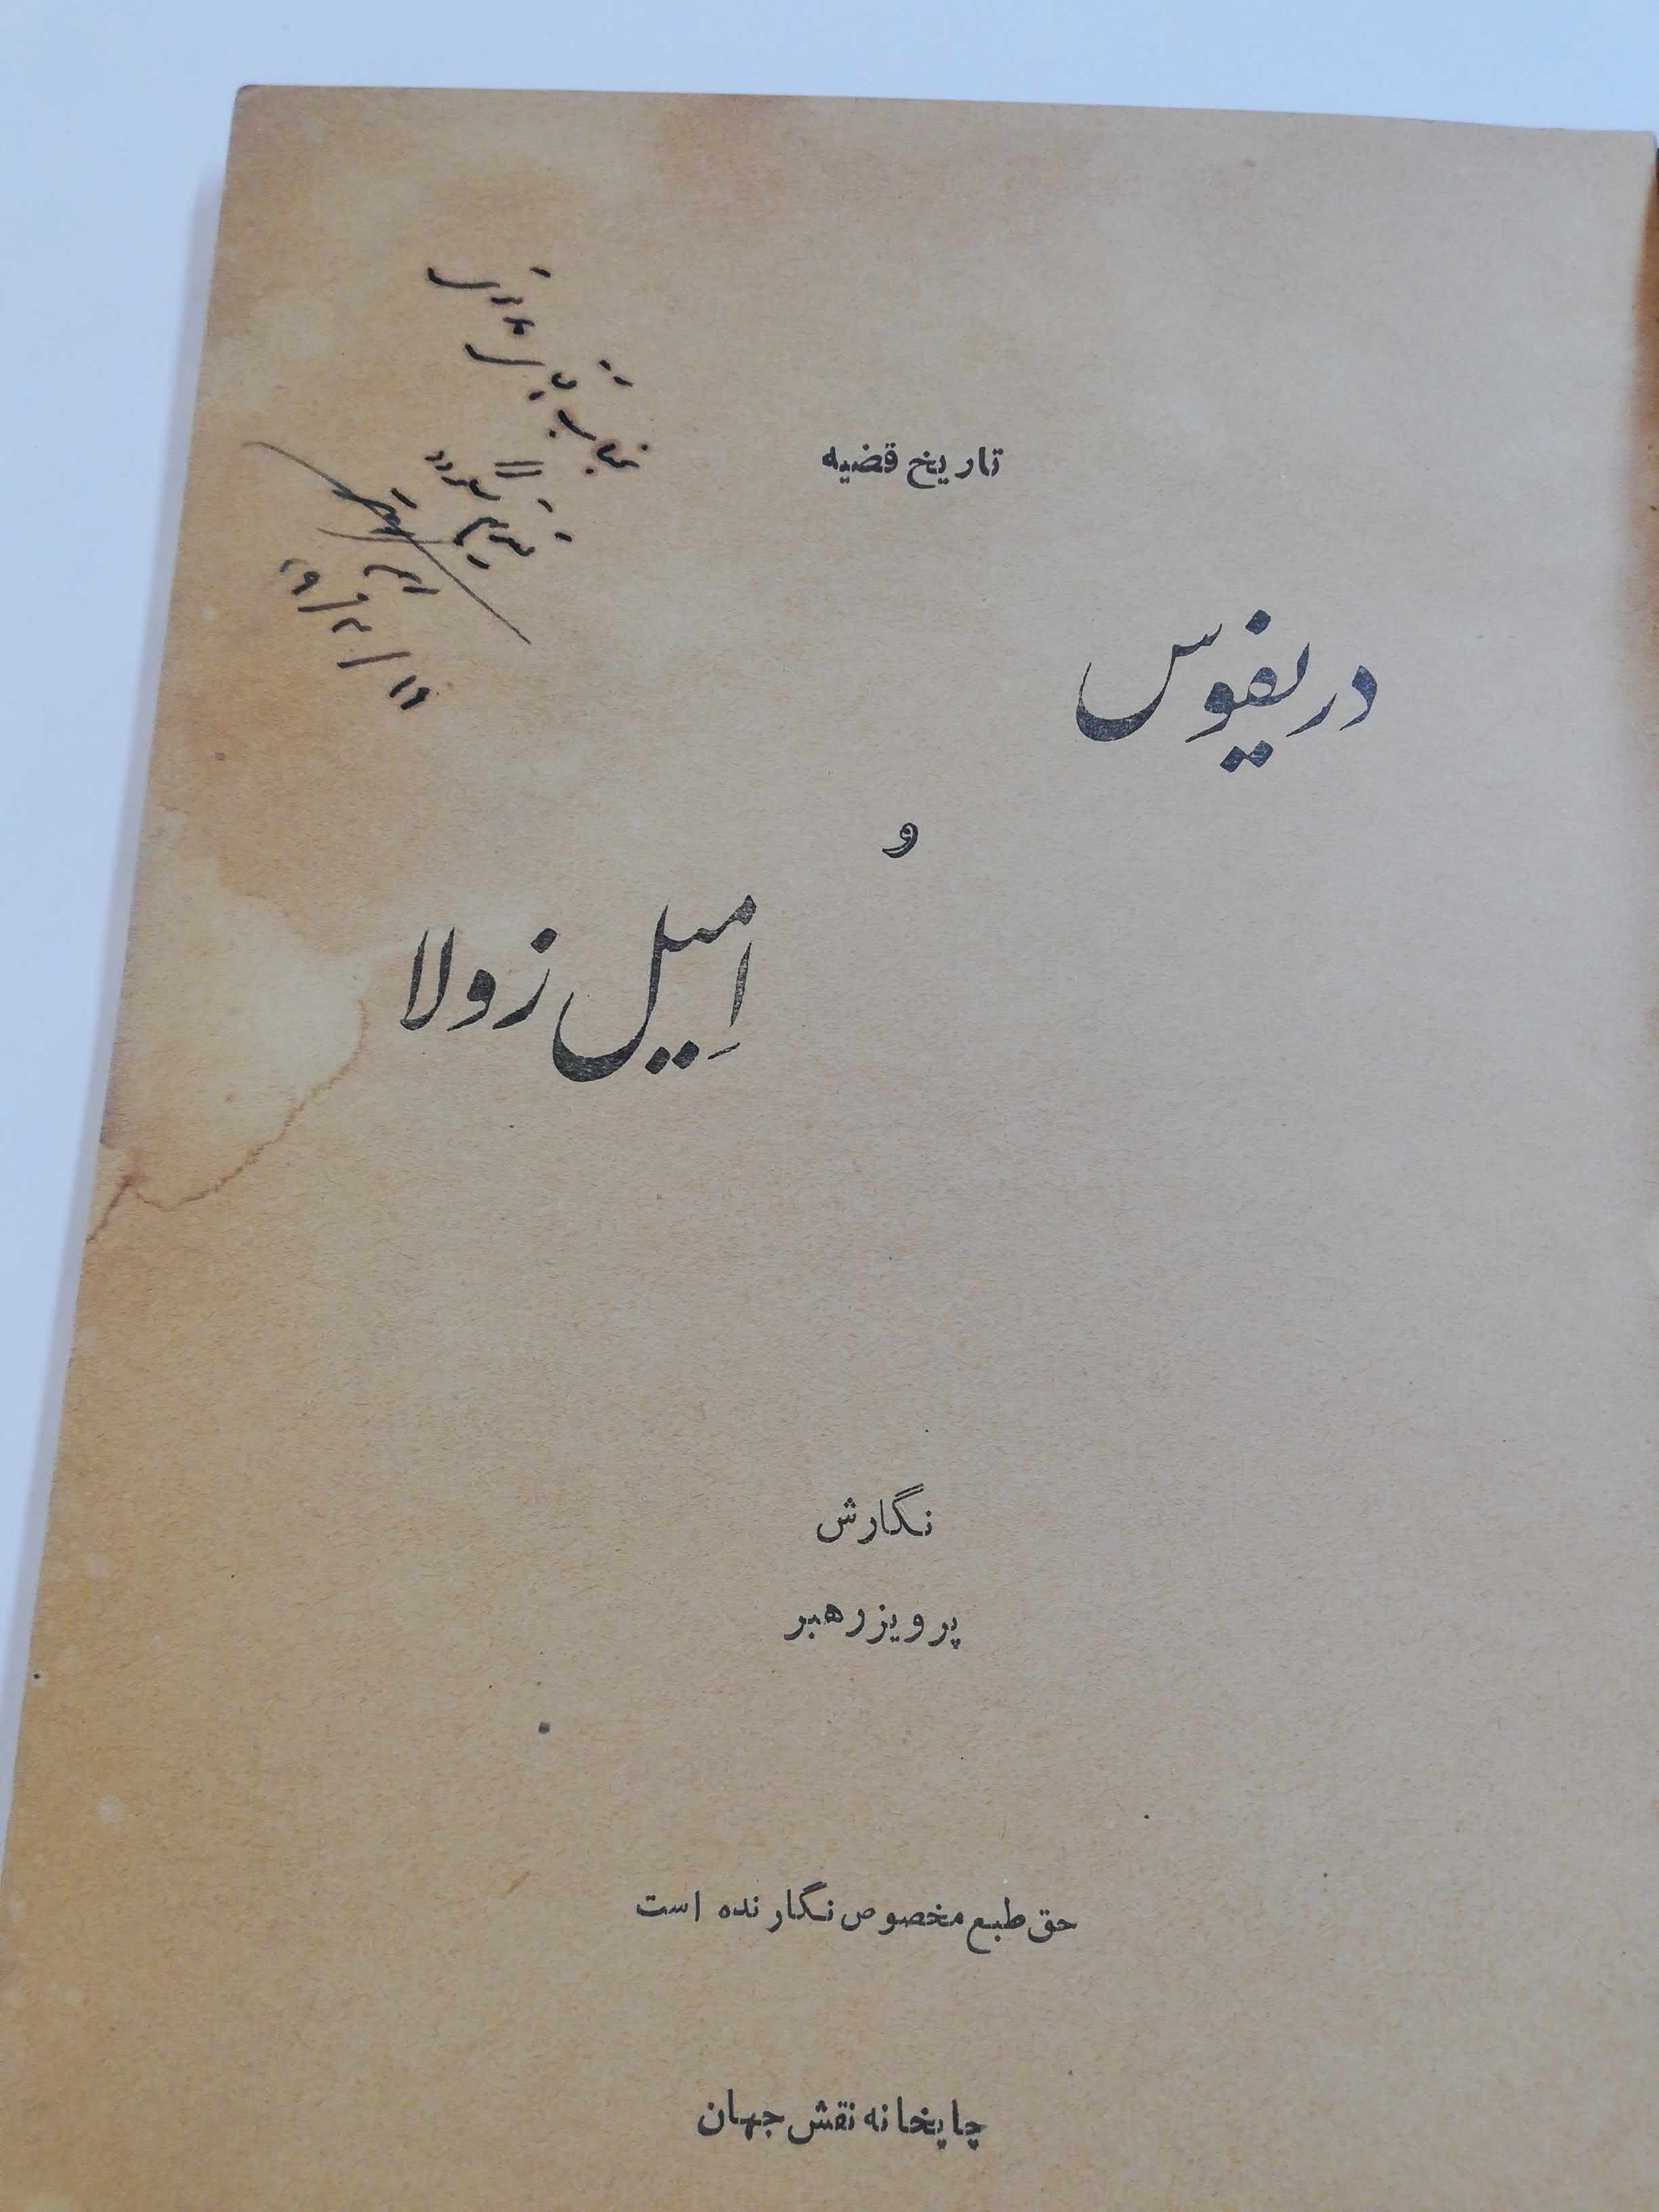 تاریخ قضیه
دریفوس
و
اِمیل زولا
نگارش
پرویز رهبر
حق طبع مخصوص نگارنده است
چاپخانه نقش جهان